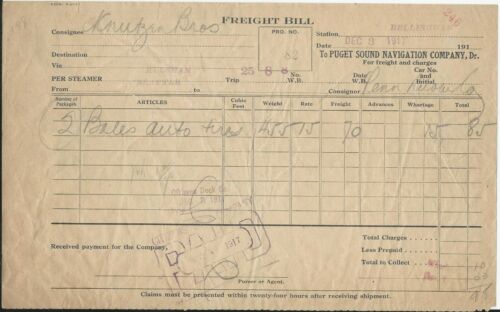 FREIGHT BILL
Consignee Knutzen Bros
PRO. NO.
Station, BELLINGHAM
DEC 8 1917
Date 191
Destination
To PUGET SOUND NAVIGATION COMPANY, Dr.
For freight and charges
Via
PER STEAMER
Trip 25 8
No. W.B.
Date W.B.
Car No. and Initial
From to
Consignor Penn
Number of Packages ARTICLES Cubic Feet Weight Rate Freight Advances Wharfage Total
2 Bales auto tires 455 15 70 15 85
Dock Co.
1917
Received payment for the Company,
Total Charges
Less Prepaid
Total to Collect 10
03
Purser or Agent.
Claims must be presented within twenty-four hours after receiving shipment.